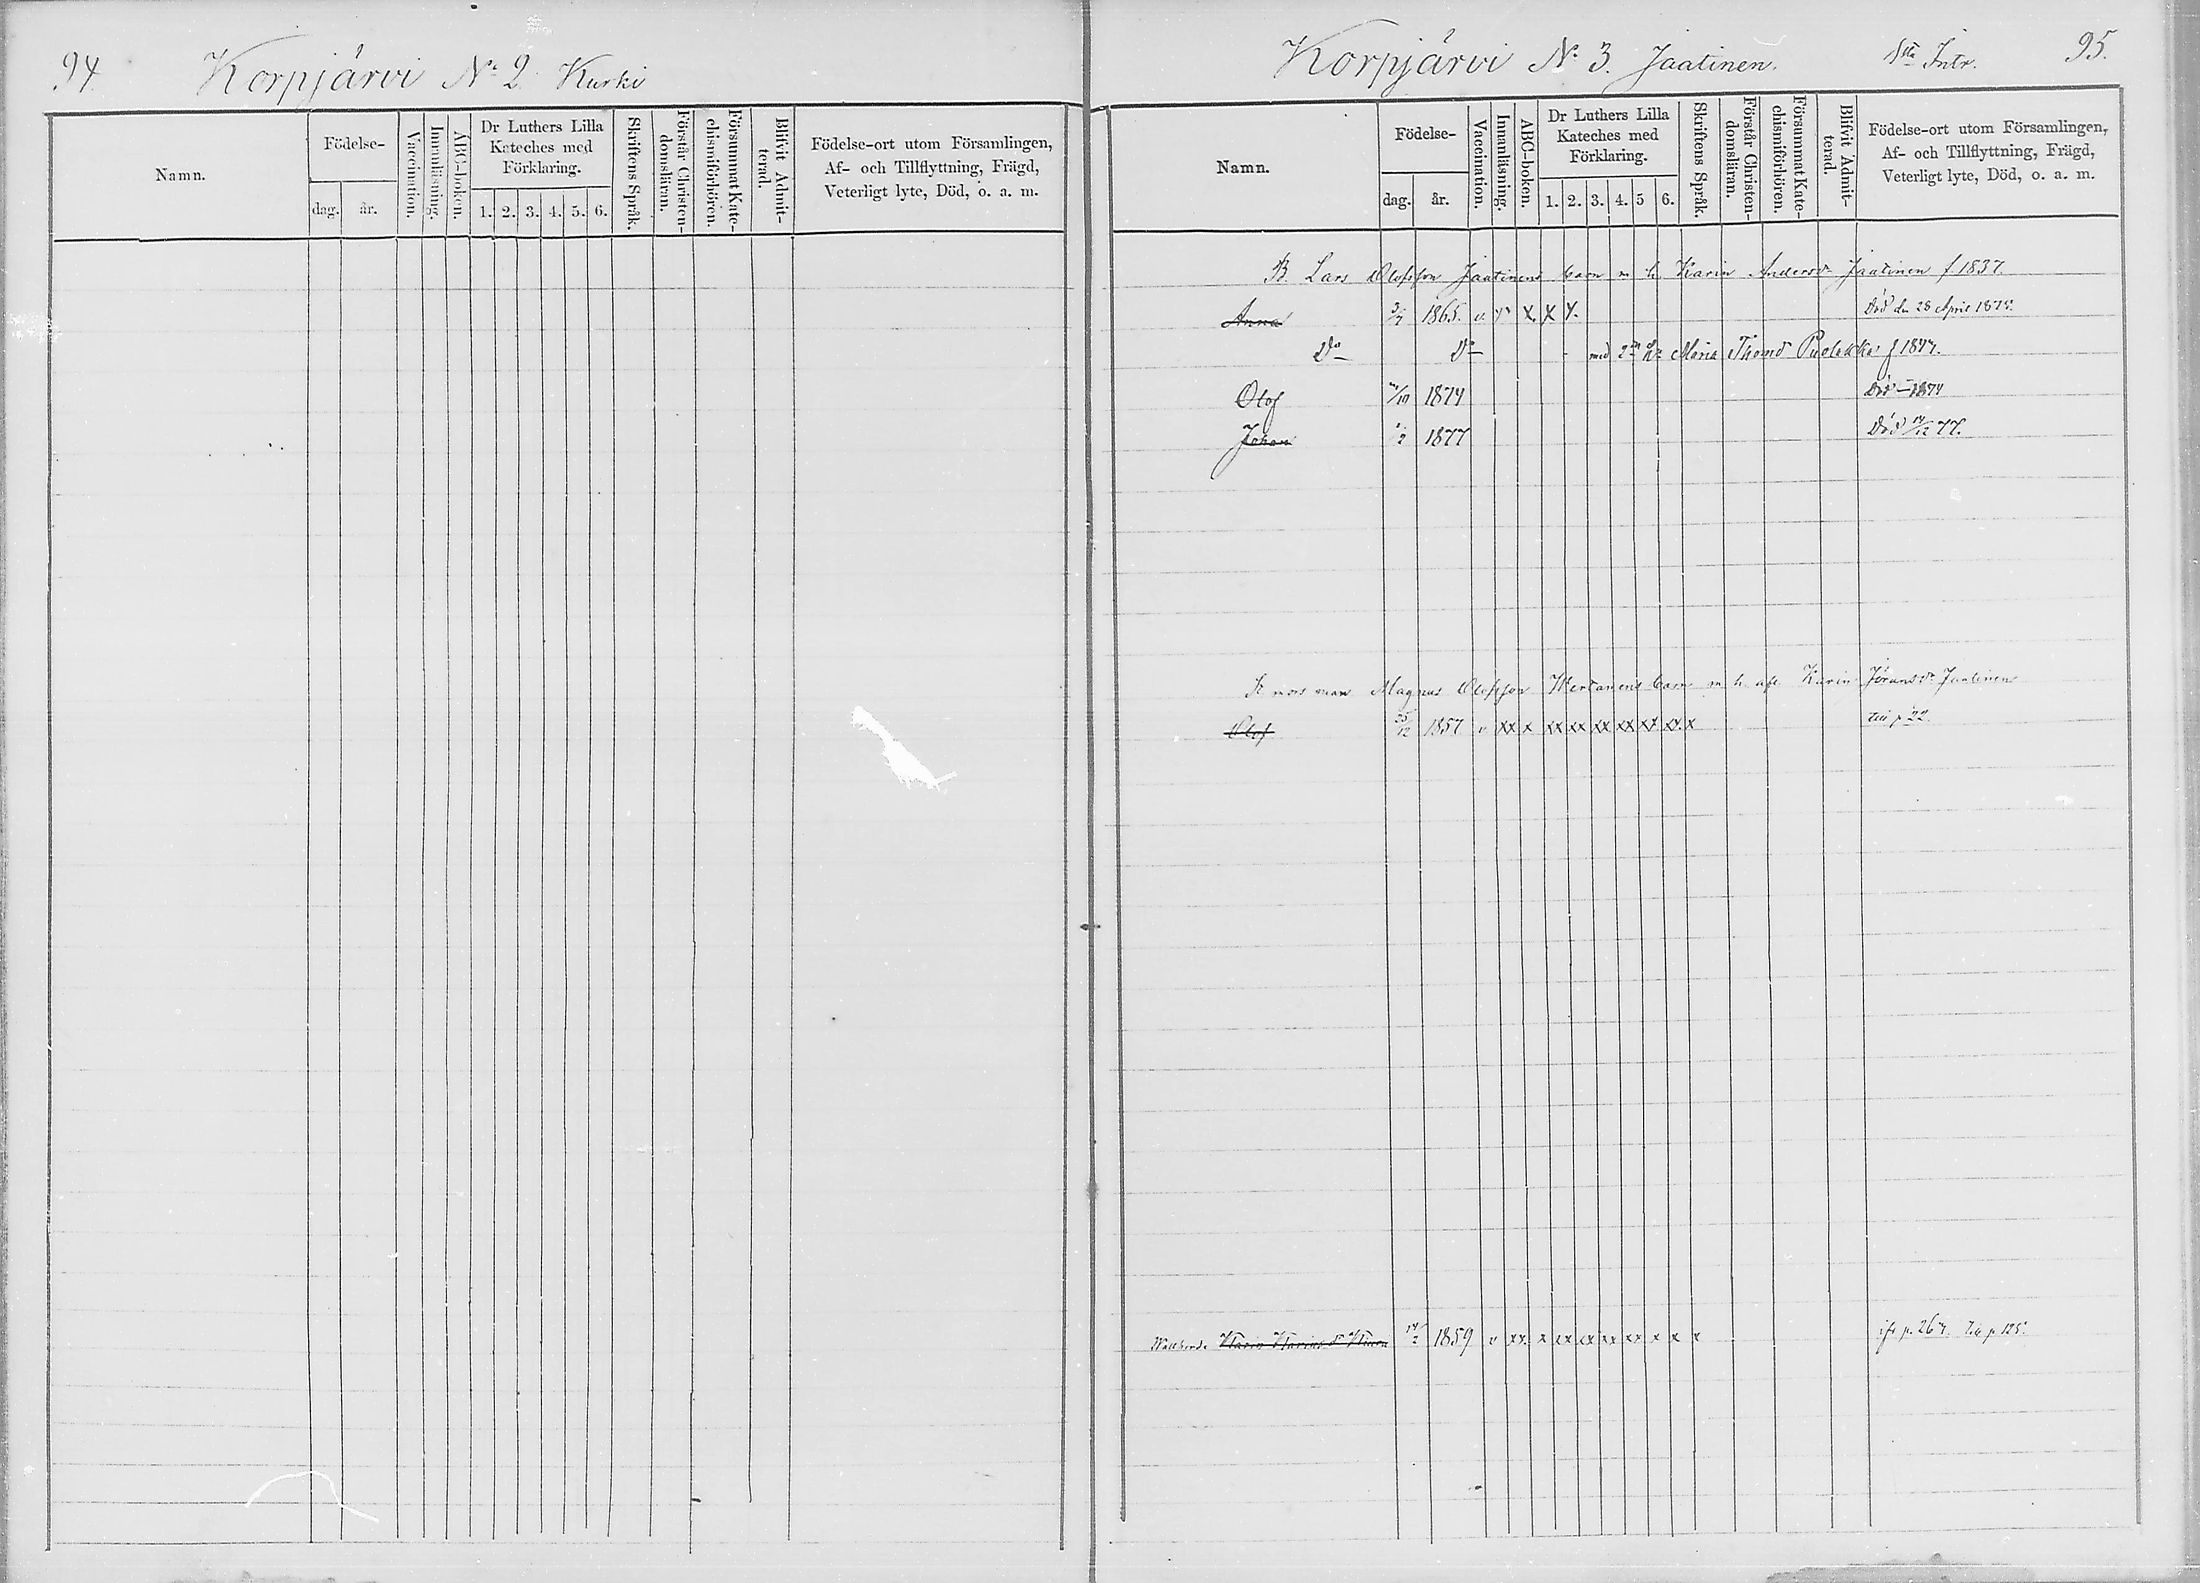 94.
Korpjärvi No 2. Kurki
Namn.
Födelse-
dag.
år.
Vaccination.
Innanläsning.
ABC-boken.
Dr Luthers Lilla
Kateches med
Förklaring.
1. 2. 3. 4. 5. 6.
Skriftens Språk.
Förstår Christen-
domsläran.
Försummat Kate-
chismiförhören.
Blifvit Admit-
terad.
Födelse-ort utom Församlingen,
Af- och Tillflyttning, Frägd,
Veterligt lyte, Död, o. a. m.
Korpjärvi No 3. Jaatinen. Intr. 95.
Namn.
Födelse-
dag.
år.
Vaccination.
Innanläsning.
ABC-boken.
Dr Luthers Lilla
Kateches med
Förklaring.
1. 2. 3. 4. 5 6.
Skriftens Språk.
Förstår Christen-
domsläran.
Försummat Kate-
chismiförhören.
Blifvit Admit-
terad.
Födelse-ort utom Församlingen,
Af- och Tillflyttning, Frägd,
Veterligt lyte, Död, o. a. m.
B. Lars Olofsson Jaatinens barn m h Karin Andersdr Jaatinen f 1837.
Anna 1865. v x x x Död den 28 April 1875.
Do Do med 2dra h. Maria Thomdr Pulakka f 1847.
Olof 1874 Död 1874
Johan 1/2 1877 Död 77.
mors man Magnus Olofsson Wertanens barn m h afl Karin Jöransdr Jaatinen
Olof 25/12 1857 v xx x xx xx xx xx xx xx x till p 22.
Karin 14/2 1859 v xx x xx xx xx xx x x x ifr p. 267. Till p 125.